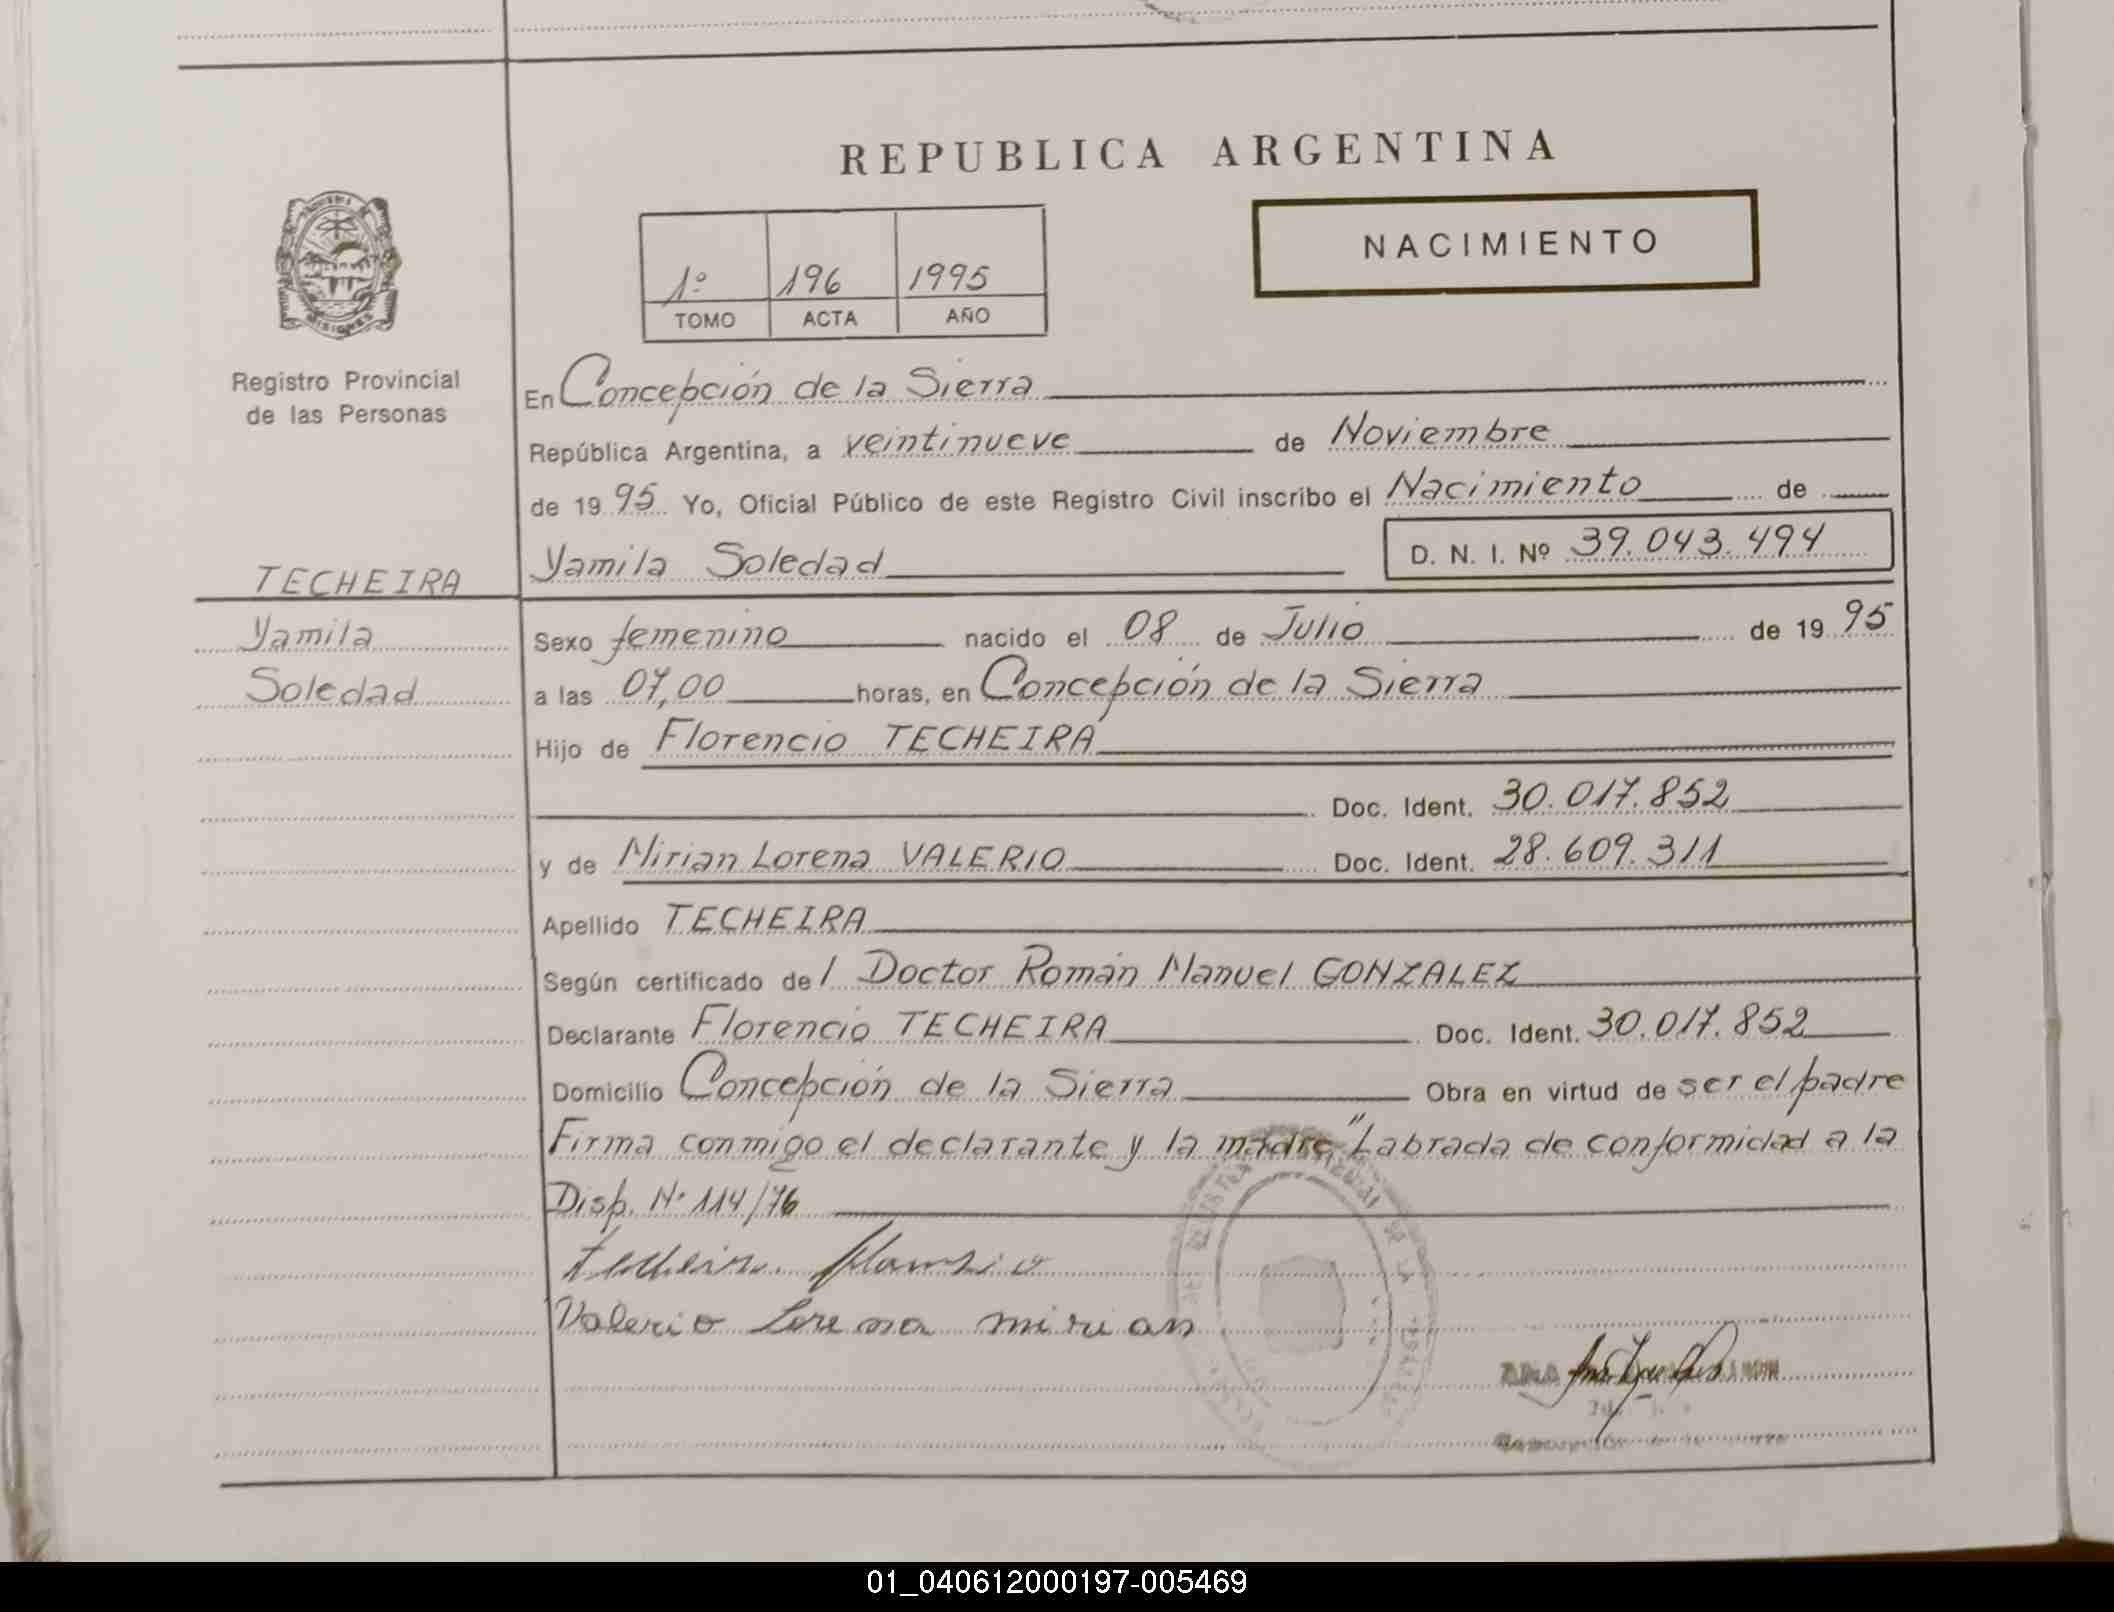 REPUBLICA ARGENTINA
NACIMIENTO
1º 196 1995
TOMO ACTA AÑO
MISIONES
Registro Provincial
de las Personas
En Concepción de la Sierra
República Argentina, a veintinueve de Noviembre
de 1995 Yo, Oficial Público de este Registro Civil inscribo el Nacimiento de
Yamila Soledad D. N. I. Nº 39.043.494
TECHEIRA
Yamila
Soledad
Sexo femenino nacido el 08 de Julio de 1995
a las 07,00 horas, en Concepción de la Sierra
Hijo de Florencio TECHEIRA
Doc. Ident. 30.017.852
y de Mirian Lorena VALERIO Doc. Ident. 28.609.311
Apellido TECHEIRA
Según certificado del Doctor Román Manuel GONZALEZ
Declarante Florencio TECHEIRA Doc. Ident. 30.017.852
Domicilio Concepción de la Sierra Obra en virtud de ser el padre
Firma conmigo el declarante y la madre "Labrada de conformidad a la
Disp. Nº 114/76
Techeira Florencio
Valerio Lorena mirian
ANA
01_040612000197-005469